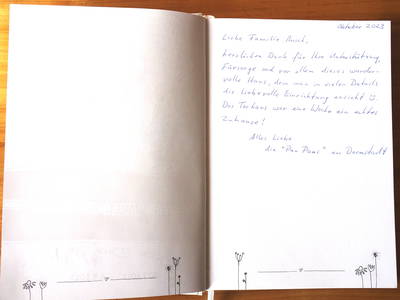 Oktober 2023
Liebe Familie
herzlichen Dank für Ihre Unterstützung,
Fürsorge und vor allem dieses wunder-
volle Haus, dem man in vielen Details
die liebevolle Einrichtung ansieht ☺.
Das Torhaus war eine Woche ein echtes
Zuhause!
Alles Liebe
die " " aus Darmstadt